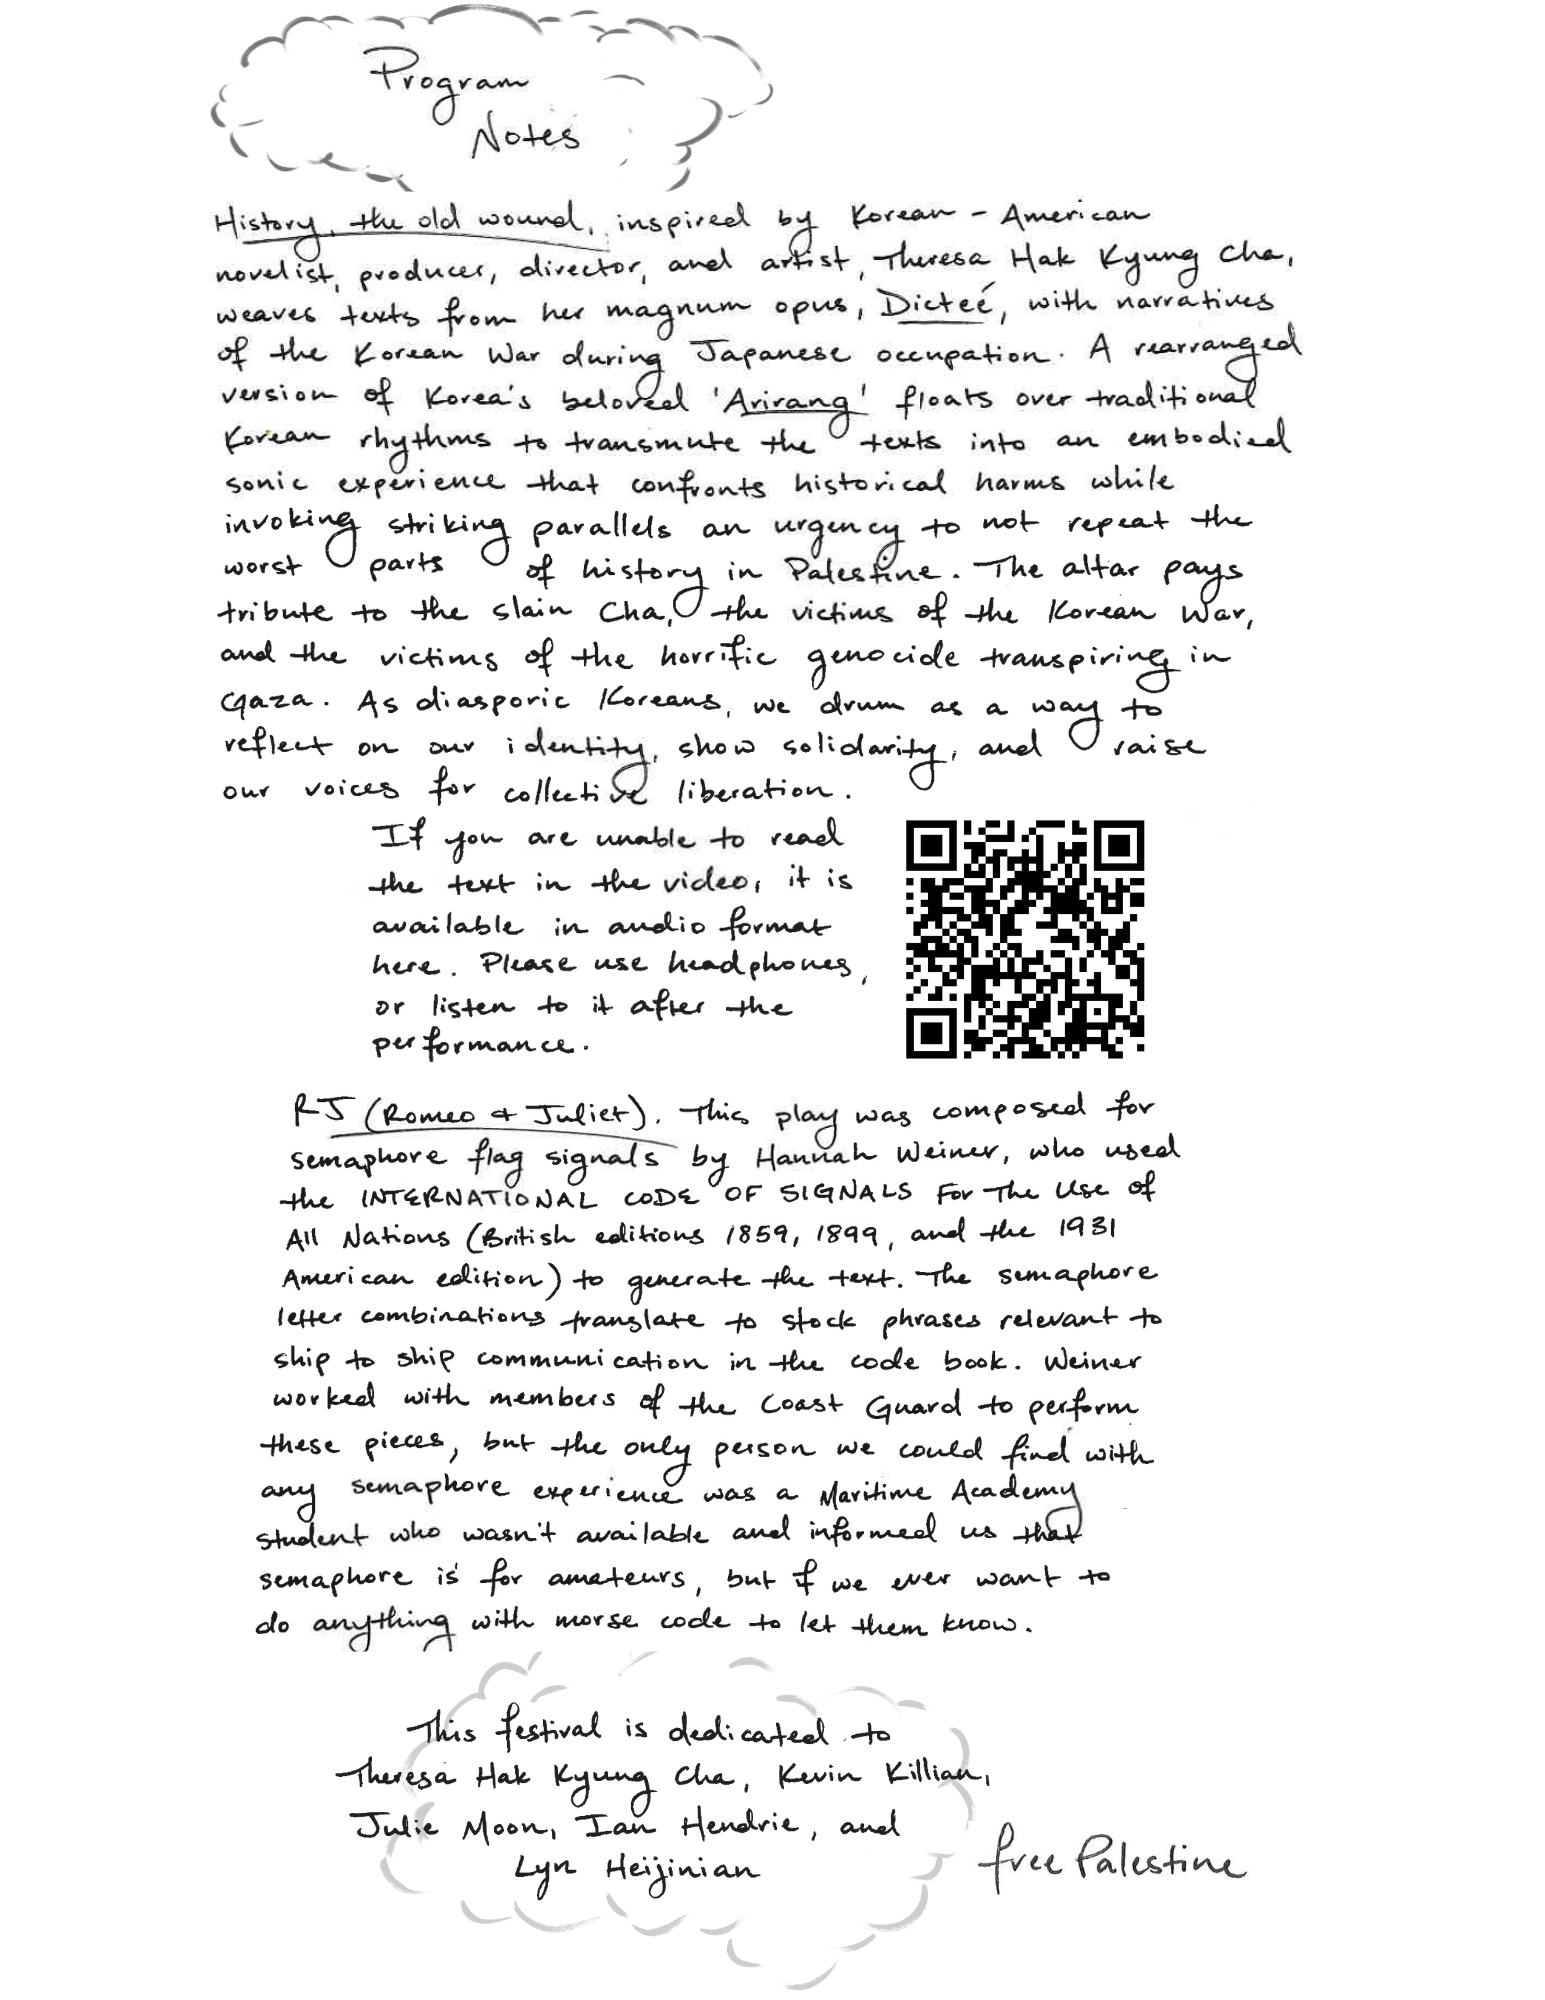 Program
Notes
History, the old wound, inspired by Korean-American
novelist, producer, director, and artist, Theresa Hak Kyung Cha,
weaves texts from her magnum opus, Dicteé, with narratives
of the Korean War during Japanese occupation. A rearranged
version of Korea's beloved 'Arirang' floats over traditional
Korean rhythms to transmute the texts into an embodied
sonic experience that confronts historical harms while
invoking striking parallels an urgency to not repeat the
worst parts of history in Palestine. The altar pays
tribute to the slain Cha, the victims of the Korean War,
and the victims of the horrific genocide transpiring in
Gaza. As diasporic Koreans, we drum as a way to
reflect on our identity, show solidarity, and raise
our voices for collective liberation.
If you are unable to read
the text in the video, it is
available in audio format
here. Please use headphones,
or listen to it after the
performance.
RJ (Romeo + Juliet). This play was composed for
semaphore flag signals by Hannah Weiner, who used
the INTERNATIONAL CODE OF SIGNALS For The Use of
All Nations (British editions 1859, 1899, and the 1931
American edition) to generate the text. The semaphore
letter combinations translate to stock phrases relevant to
ship to ship communication in the code book. Weiner
worked with members of the Coast Guard to perform
these pieces, but the only person we could find with
any semaphore experience was a Maritime Academy
student who wasn't available and informed us that
semaphore is for amateurs, but if we ever want to
do anything with morse code to let them know.
This festival is dedicated to
Theresa Hak Kyung Cha, Kevin Killian,
Julie Moon, Ian Hendrie, and
Lyn Heijinian
free Palestine